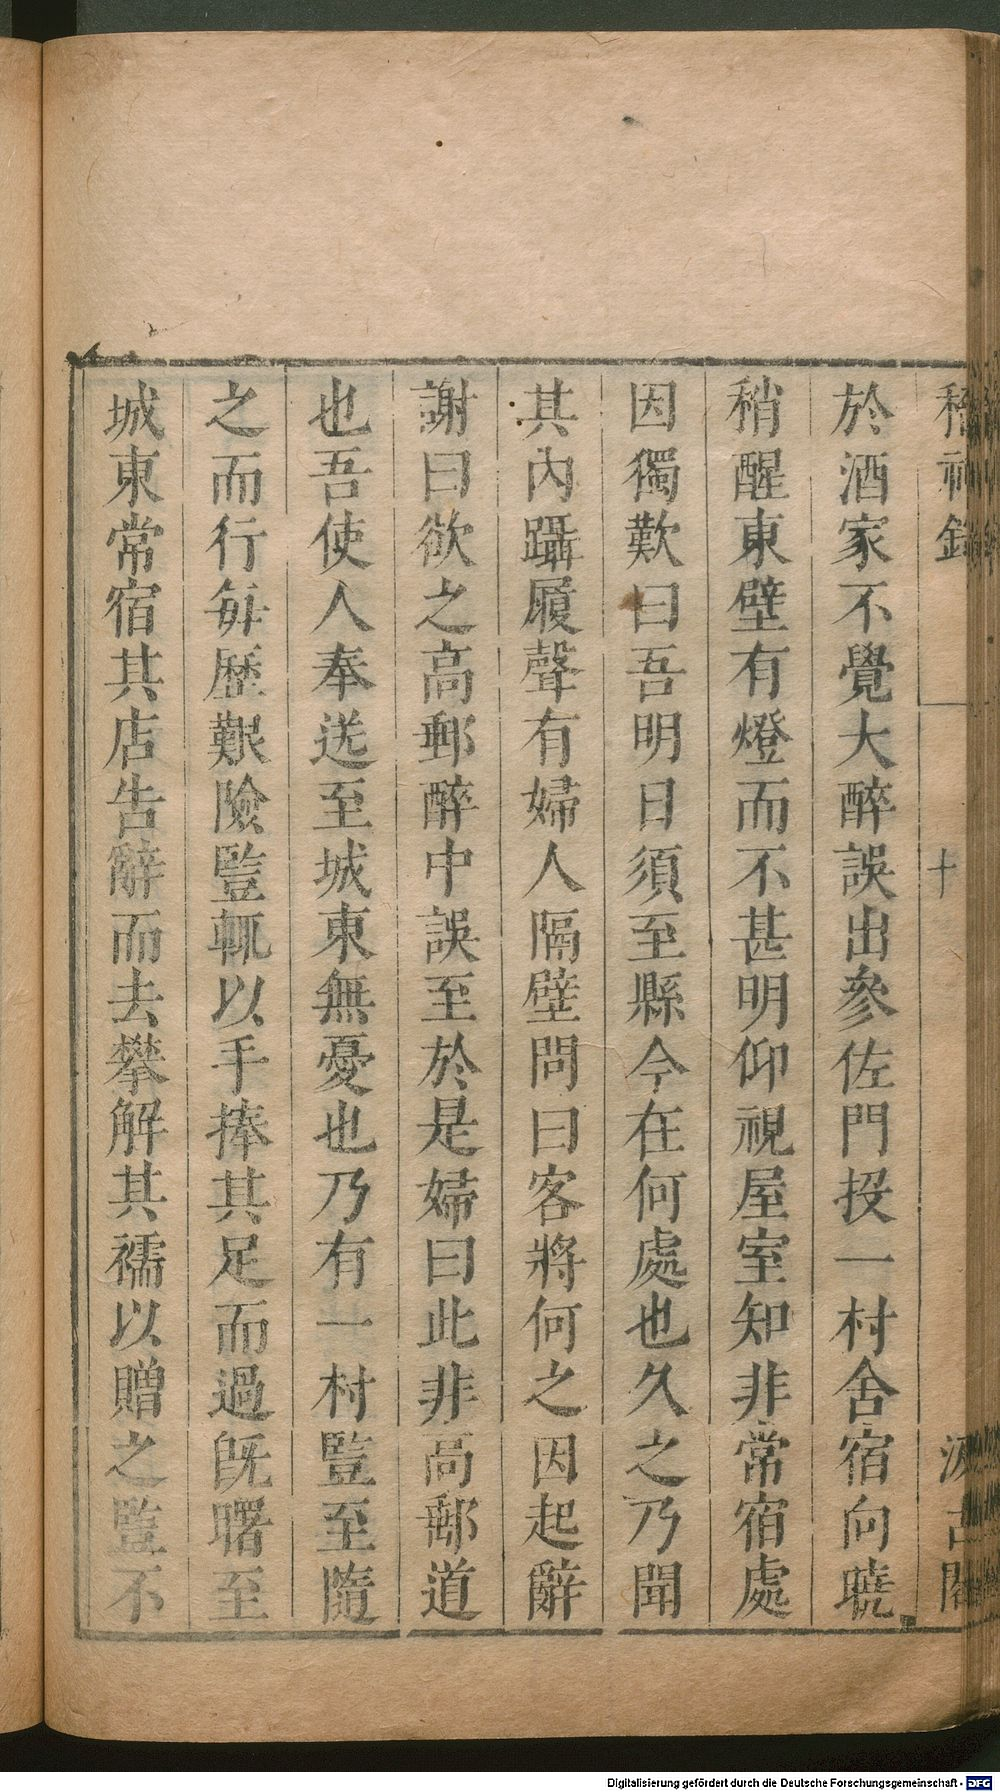 稽神錄
十
汲古閣
於酒家不覺大醉誤出參佐門投一村舍宿向曉
稍醒東壁有燈而不甚明仰視屋室知非常宿處
因獨歎曰吾明日須至縣今在何處也久之乃聞
其內躡履聲有婦人隔壁問曰客將何之因起辭
謝曰欲之高郵醉中誤至於是婦曰此非高郵道
也吾使人奉送至城東無憂也乃有一村豎至隨
之而行每歷艱險豎輒以手捧其足而過旣曙至
城東常宿其店告辭而去攀解其襦以贈之豎不
Digitalisierung gefördert durch die Deutsche Forschungsgemeinschaft - DFG